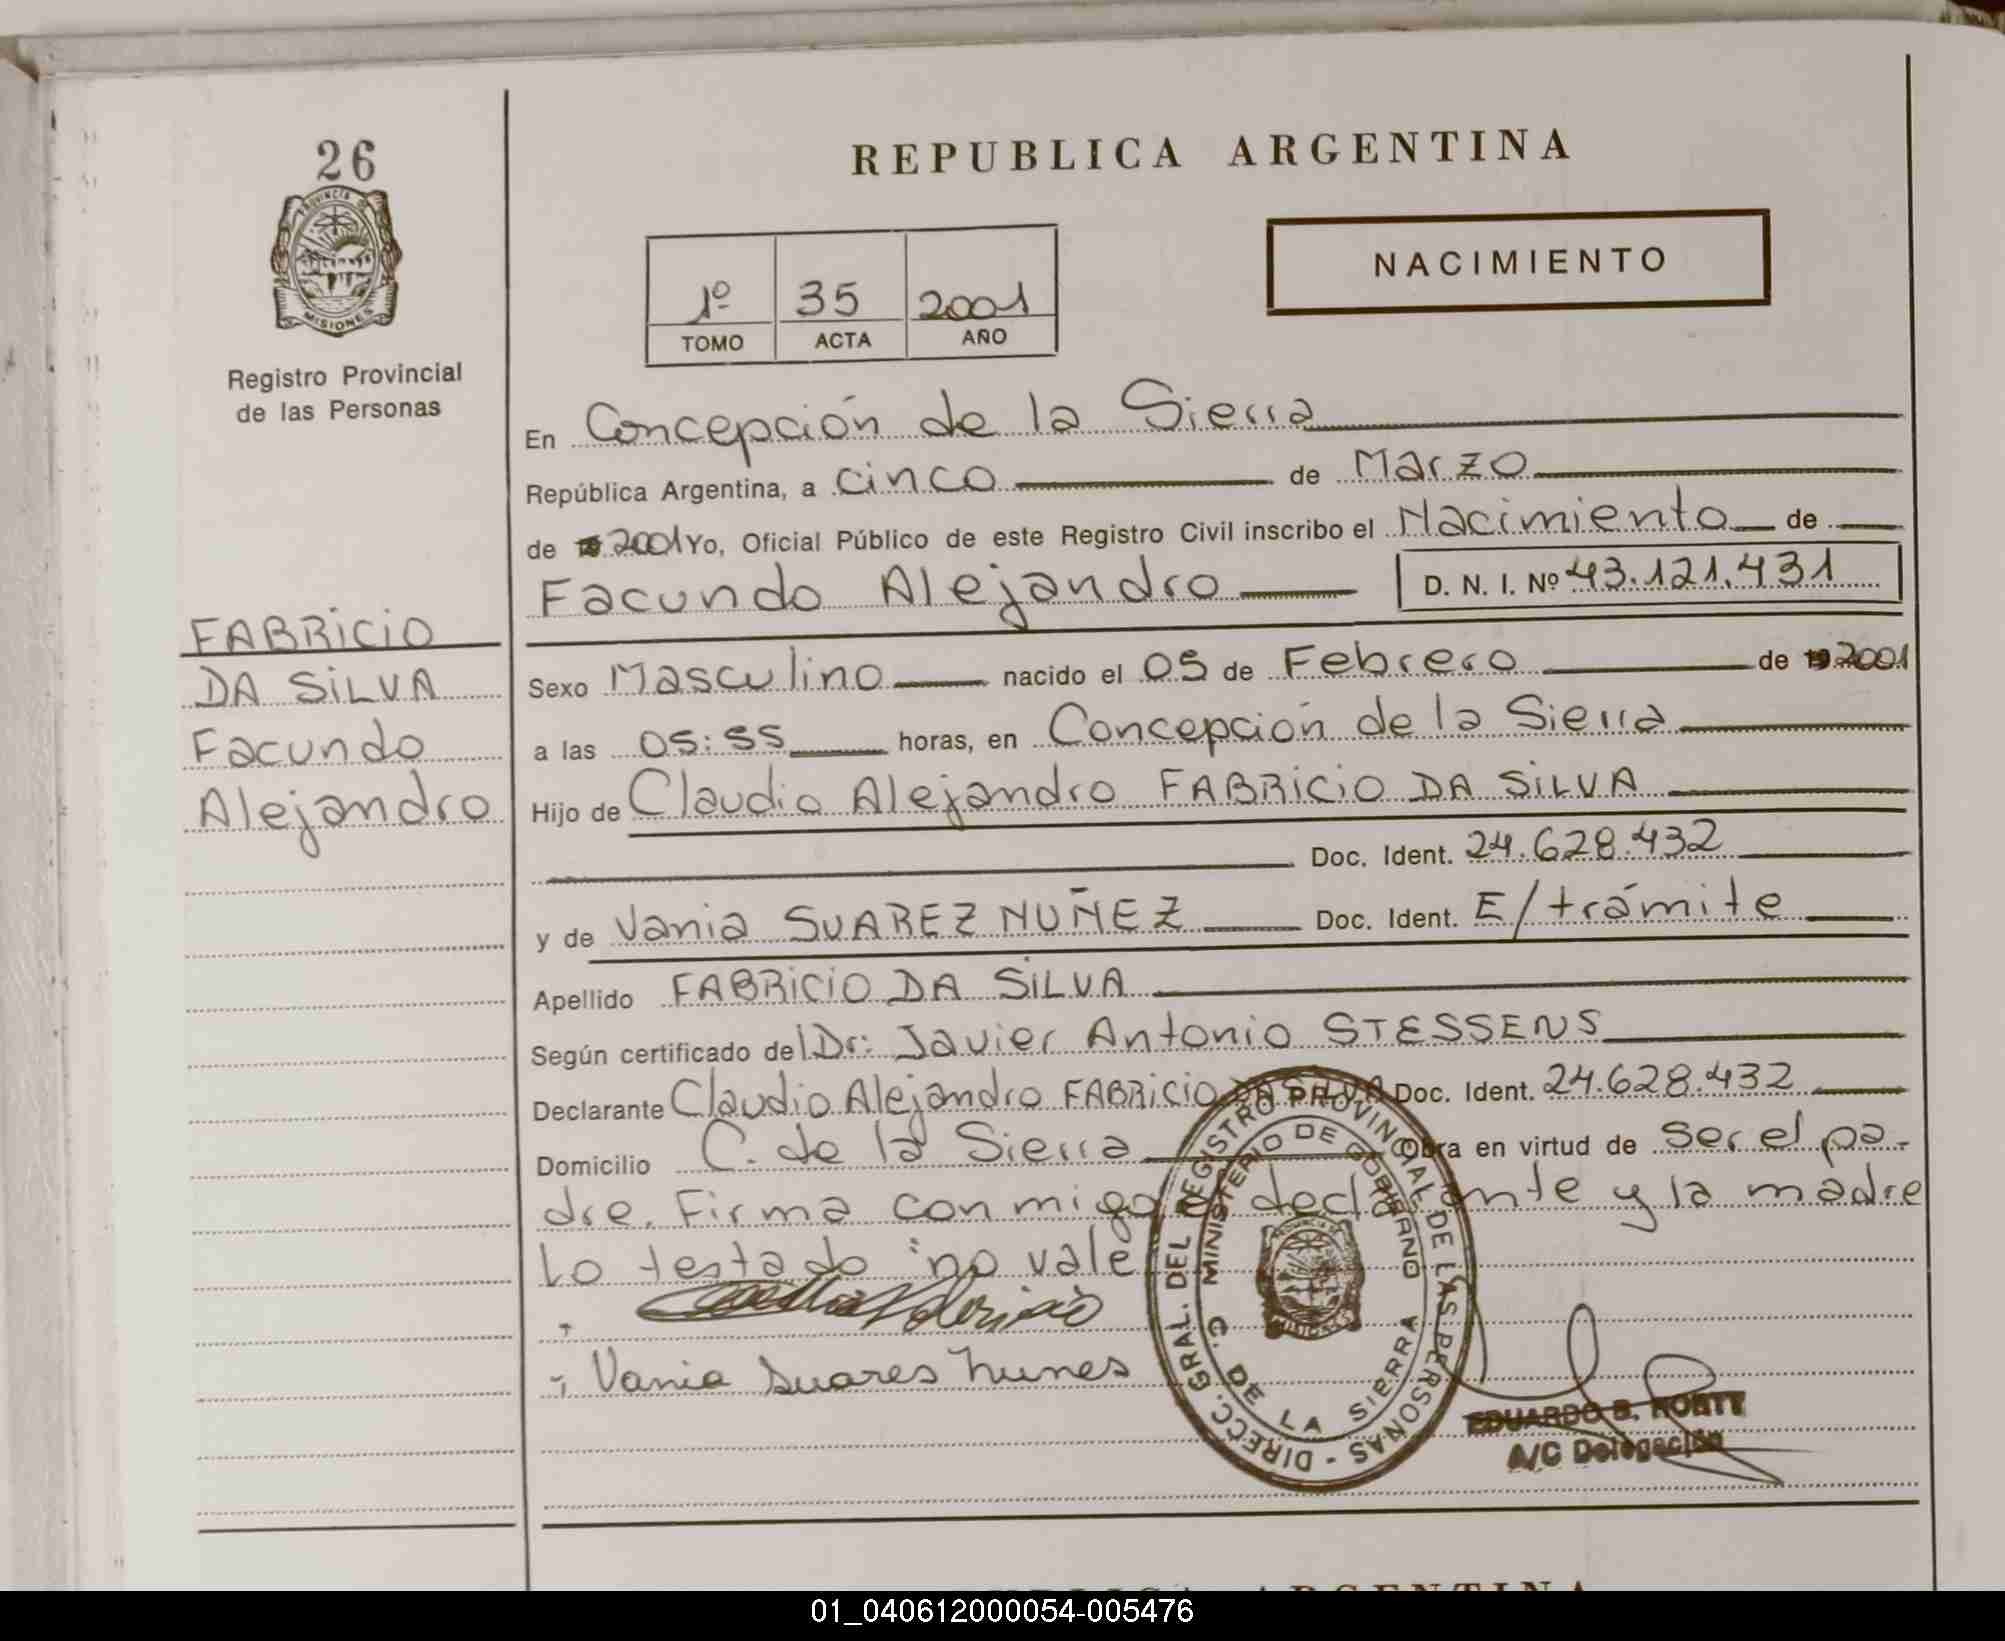 26
PROVINCIA DE
MISIONES
Registro Provincial
de las Personas
FABRICIO
DA SILVA
Facundo
Alejandro
REPUBLICA ARGENTINA
NACIMIENTO
1º 35 2001
TOMO ACTA AÑO
En Concepción de la Sierra
República Argentina, a cinco de Marzo
de 2001 Yo, Oficial Público de este Registro Civil inscribo el Nacimiento de
Facundo Alejandro D. N. I. Nº 43.121.431
Sexo Masculino nacido el 05 de Febrero de 19 2001
a las 05:55 horas, en Concepción de la Sierra
Hijo de Claudio Alejandro FABRICIO DA SILVA
Doc. Ident. 24.628.432
y de Vania SUAREZ NUÑEZ Doc. Ident. E/trámite
Apellido FABRICIO DA SILVA
Según certificado del Dr: Javier Antonio STESSENS
Declarante Claudio Alejandro FABRICIO DA SILVA Doc. Ident. 24.628.432
Domicilio C. de la Sierra Obra en virtud de ser el pa-
dre. Firma conmigo el declarante y la madre
Lo testado no vale
; Vania Suares Nunes
DIRECC. GRAL. DEL REGISTRO PROVINCIAL DE LAS PERSONAS -
MINISTERIO DE GOBIERNO
C. DE LA SIERRA
MISIONES
EDUARDO B.
A/C Delegación
REPUBLICA ARGENTINA
01_040612000054-005476